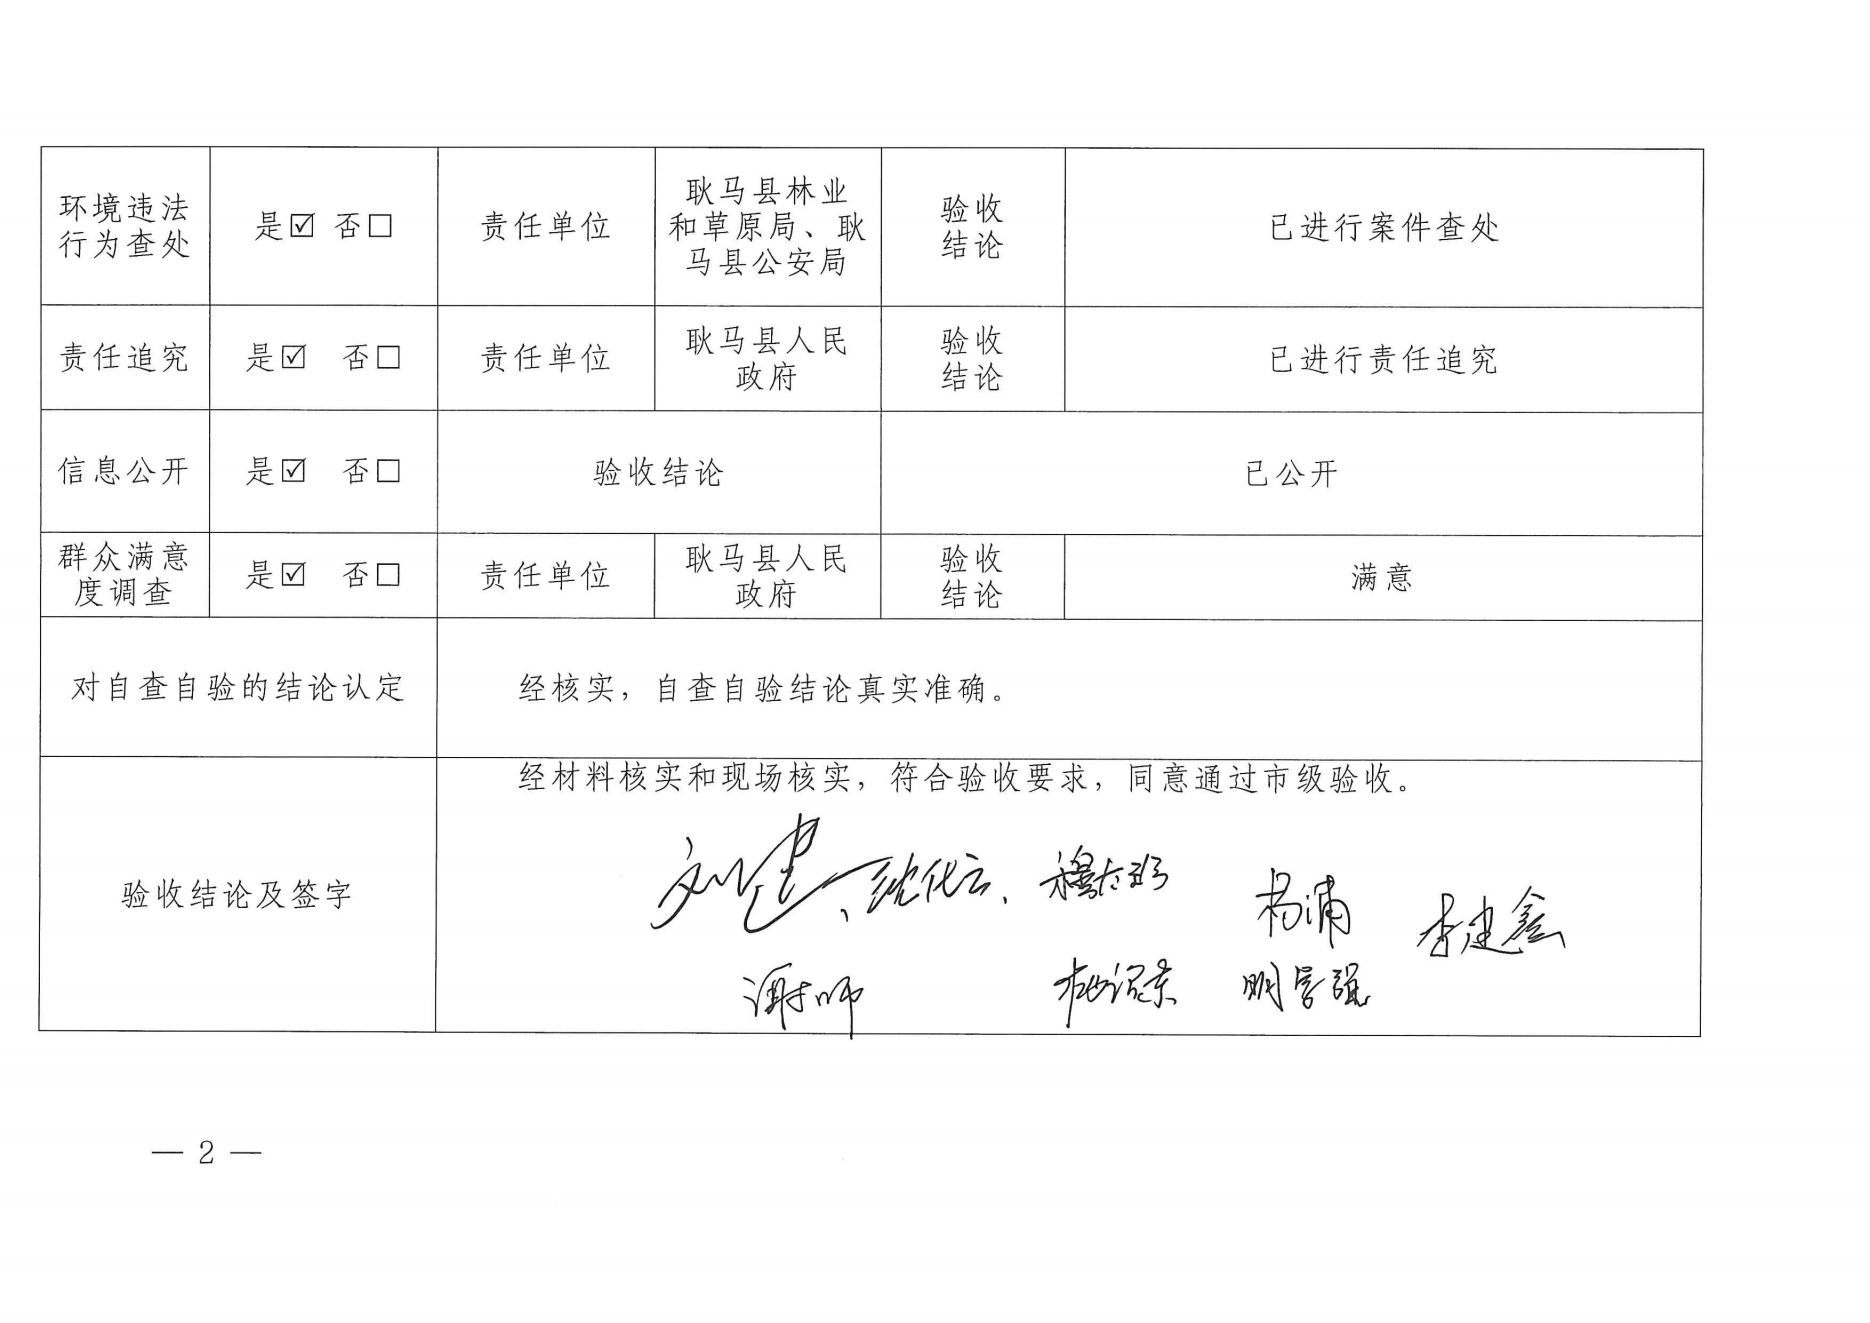 环境违法
行为查处
是☑ 否☐
责任单位
耿马县林业
和草原局、耿
马县公安局
验收
结论
已进行案件查处
责任追究
是☑ 否☐
责任单位
耿马县人民
政府
验收
结论
已进行责任追究
信息公开
是☑ 否☐
验收结论
已公开
群众满意
度调查
是☑ 否☐
责任单位
耿马县人民
政府
验收
结论
满意
对自查自验的结论认定
经核实，自查自验结论真实准确。
验收结论及签字
经材料核实和现场核实，符合验收要求，同意通过市级验收。
刘建、
李建鑫
— 2 —